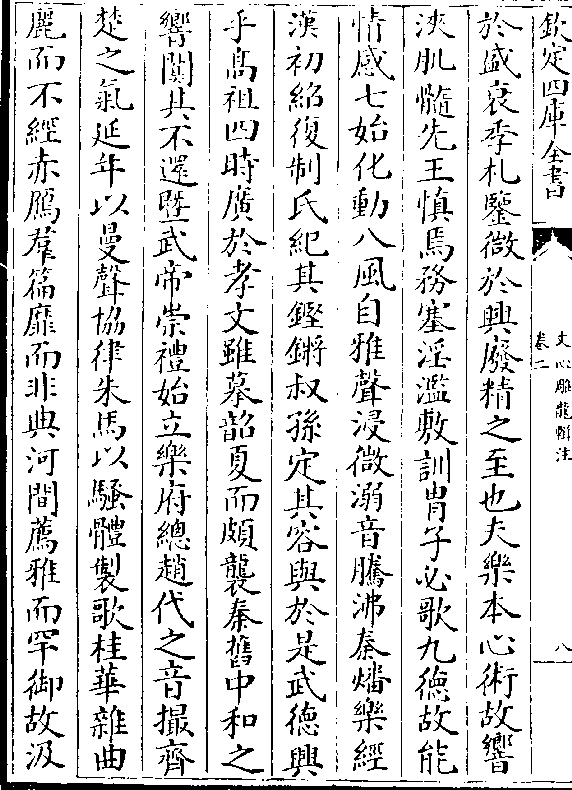 欽定四庫全書
文心雕龍輯注
卷二
八
於盛衰季札鑒微於興廢精之至也夫樂本心術故響
浹肌髓先王慎焉務塞淫濫敷訓胄子必歌九德故能
情感七始化動八風自雅聲浸微溺音騰沸秦燔樂經
漢初紹復制氏紀其鏗鏘叔孫定其容與於是武德興
乎髙祖四時廣於孝文雖摹韶夏而頗襲秦舊中和之
響闃其不還暨武帝崇禮始立樂府總趙代之音撮齊
楚之氣延年以曼聲協律朱馬以騷體製歌桂華雜曲
麗而不經赤鴈羣篇靡而非典河間薦雅而罕御故汲